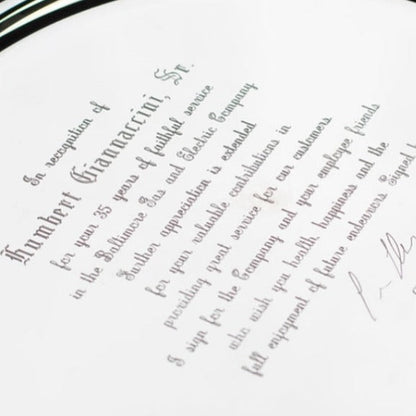 In recognition of
Humbert Giannaccini, Sr.
for your 35 years of faithful service
in the Baltimore Gas and Electric Company
Further appreciation is extended
for your valuable contributions in
providing great service for our customers
I sign for the Company and your employee friends
who wish you health happiness and the
full enjoyment of future endeavors Signed